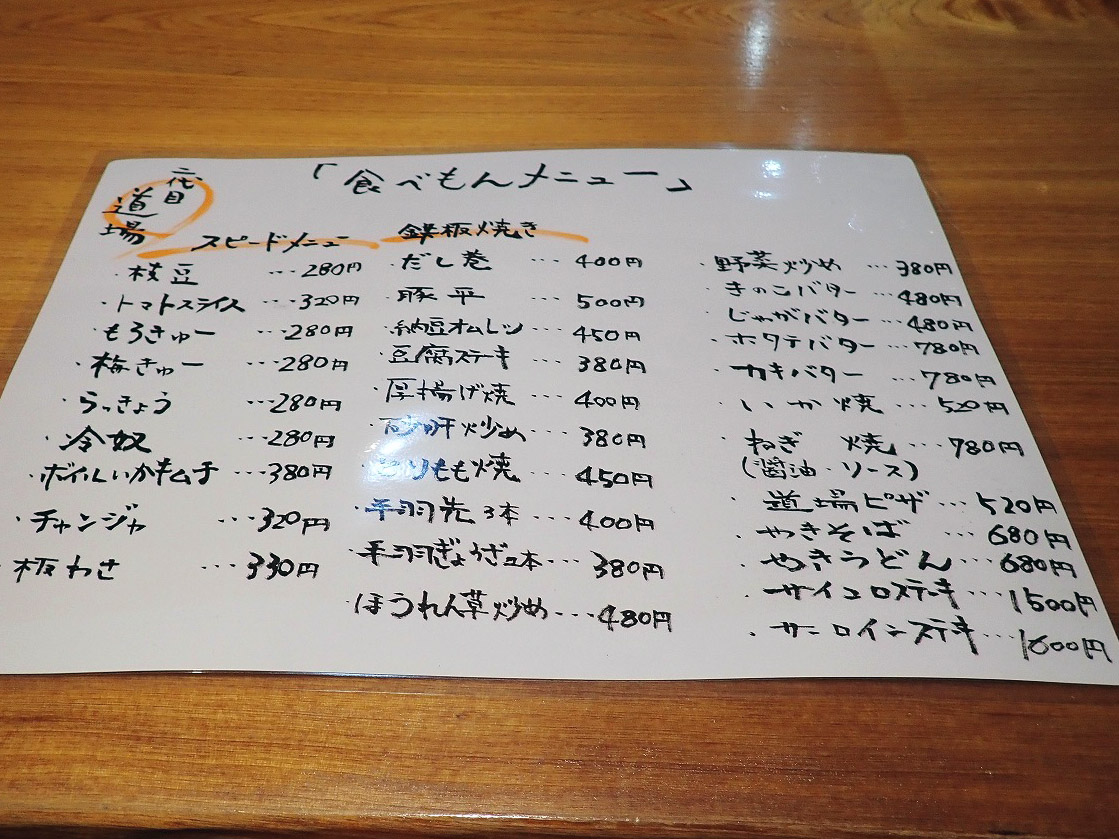 二代目
道場
「食べもんメニュー」
スピードメニュー
・枝豆 …280円
・トマトスライス …320円
・もろきゅー …280円
・梅きゅー …280円
・らっきょう …280円
・冷奴 …280円
・ボイルいかキムチ …380円
・チャンジャ …320円
・板わさ …330円
鉄板焼き
・だし巻 …400円
・豚平 …500円
・納豆オムレツ …450円
・豆腐ステーキ …380円
・厚揚げ焼 …400円
・砂肝炒め …380円
・とりもも焼 …450円
・手羽先3本 …400円
・手羽ぎょうざ2本 …380円
・ほうれん草炒め …480円
・野菜炒め …380円
・きのこバター …480円
・じゃがバター …480円
・ホタテバター …780円
・カキバター …780円
・いか焼 …520円
・ねぎ焼 …780円
(醤油・ソース)
・道場ピザ …520円
・やきそば …680円
・やきうどん …680円
・サイコロステーキ …1500円
・サーロインステーキ …1600円